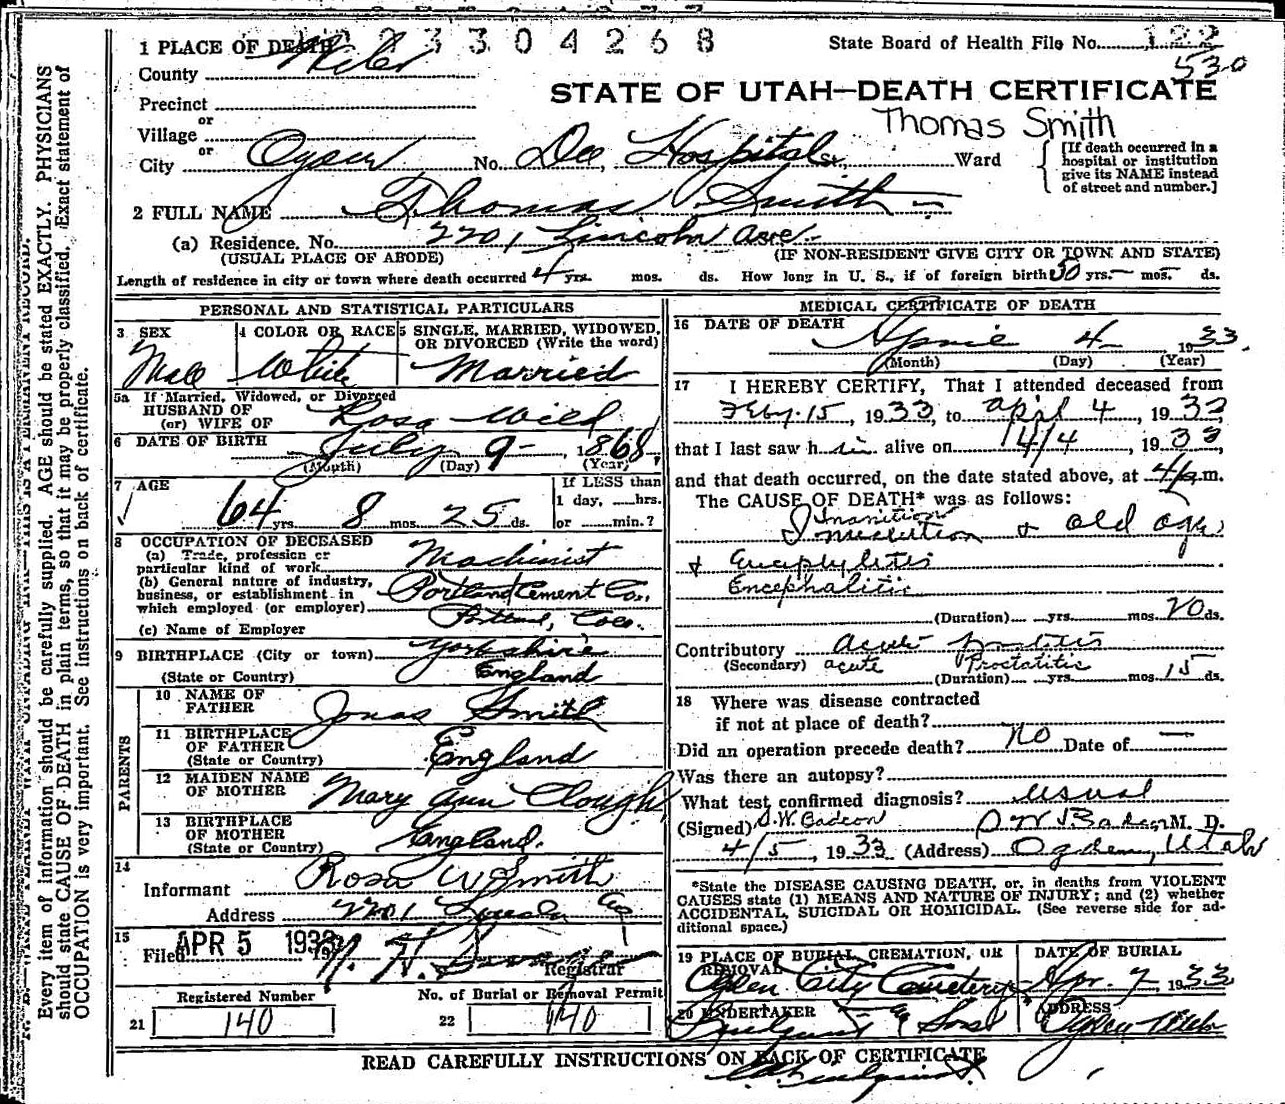 2 3 3 0 4 2 6 8
State Board of Health File No. 122
530
1 PLACE OF DEATH
County
STATE OF UTAH—DEATH CERTIFICATE
Precinct
Thomas Smith
or
Village
or
City Ogden No. Dee Hospital St., Ward
[If death occurred in a hospital or institution give its NAME instead of street and number.]
2 FULL NAME Thomas Smith
(a) Residence. No. 2201 Lincoln Ave.
(USUAL PLACE OF ABODE) (IF NON-RESIDENT GIVE CITY OR TOWN AND STATE)
Length of residence in city or town where death occurred 4 yrs. mos. ds. How long in U. S., if of foreign birth 50 yrs. — mos. — ds.
PERSONAL AND STATISTICAL PARTICULARS
3 SEX Male
4 COLOR OR RACE White
5 SINGLE, MARRIED, WIDOWED, OR DIVORCED (Write the word) Married
5a If Married, Widowed, or Divorced
HUSBAND OF
(or) WIFE OF Rosa Wild
6 DATE OF BIRTH July 9 - , 1868
(Month) (Day) (Year)
7 AGE 64 yrs 8 mos. 25 ds.
If LESS than
1 day, hrs.
or min.?
8 OCCUPATION OF DECEASED
(a) Trade, profession or
particular kind of work Machinist
(b) General nature of industry,
business, or establishment in
which employed (or employer) Portland Cement Co.,
(c) Name of Employer Portland, Colo.
9 BIRTHPLACE (City or town) Yorkshire
(State or Country) England
PARENTS
10 NAME OF
FATHER Jonas Smith
11 BIRTHPLACE
OF FATHER
(State or Country) England
12 MAIDEN NAME
OF MOTHER Mary Ann Clough
13 BIRTHPLACE
OF MOTHER
(State or Country) England.
14
Informant Rosa W Smith
Address 2201 Lincoln Ave
15
Filed APR 5 1933
Registrar
Registered Number
21 140
No. of Burial or Removal Permit
22 140
MEDICAL CERTIFICATE OF DEATH
16 DATE OF DEATH
April 4 1933.
(Month) (Day) (Year)
17 I HEREBY CERTIFY, That I attended deceased from
Feby. 15, 1933, to April 4, 1933,
that I last saw h im alive on 4/4, 1933
and that death occurred, on the date stated above, at m.
The CAUSE OF DEATH* was as follows:
Inanition
& old age
&
Encephalitis
(Duration) yrs. mos. 20 ds.
Contributory acute
(Secondary) acute Proctatitis
(Duration) yrs. mos. 15 ds.
18 Where was disease contracted
if not at place of death?
Did an operation precede death? No Date of —
Was there an autopsy?
What test confirmed diagnosis? usual
(Signed) M. D.
4/5, 1933 (Address) Ogden, Utah
*State the DISEASE CAUSING DEATH, or, in deaths from VIOLENT
CAUSES state (1) MEANS AND NATURE OF INJURY; and (2) whether
ACCIDENTAL, SUICIDAL OR HOMICIDAL. (See reverse side for ad-
ditional space.)
19 PLACE OF BURIAL, CREMATION, OR
REMOVAL
Ogden City Cemetery
DATE OF BURIAL
Apr. 7, 1933
20 UNDERTAKER
Lindquist & Sons
ADDRESS
Ogden Utah
READ CAREFULLY INSTRUCTIONS ON BACK OF CERTIFICATE
Every item of information should be carefully supplied. AGE should be stated EXACTLY. PHYSICIANS
should state CAUSE OF DEATH in plain terms, so that it may be properly classified. Exact statement of
OCCUPATION is very important. See instructions on back of certificate.